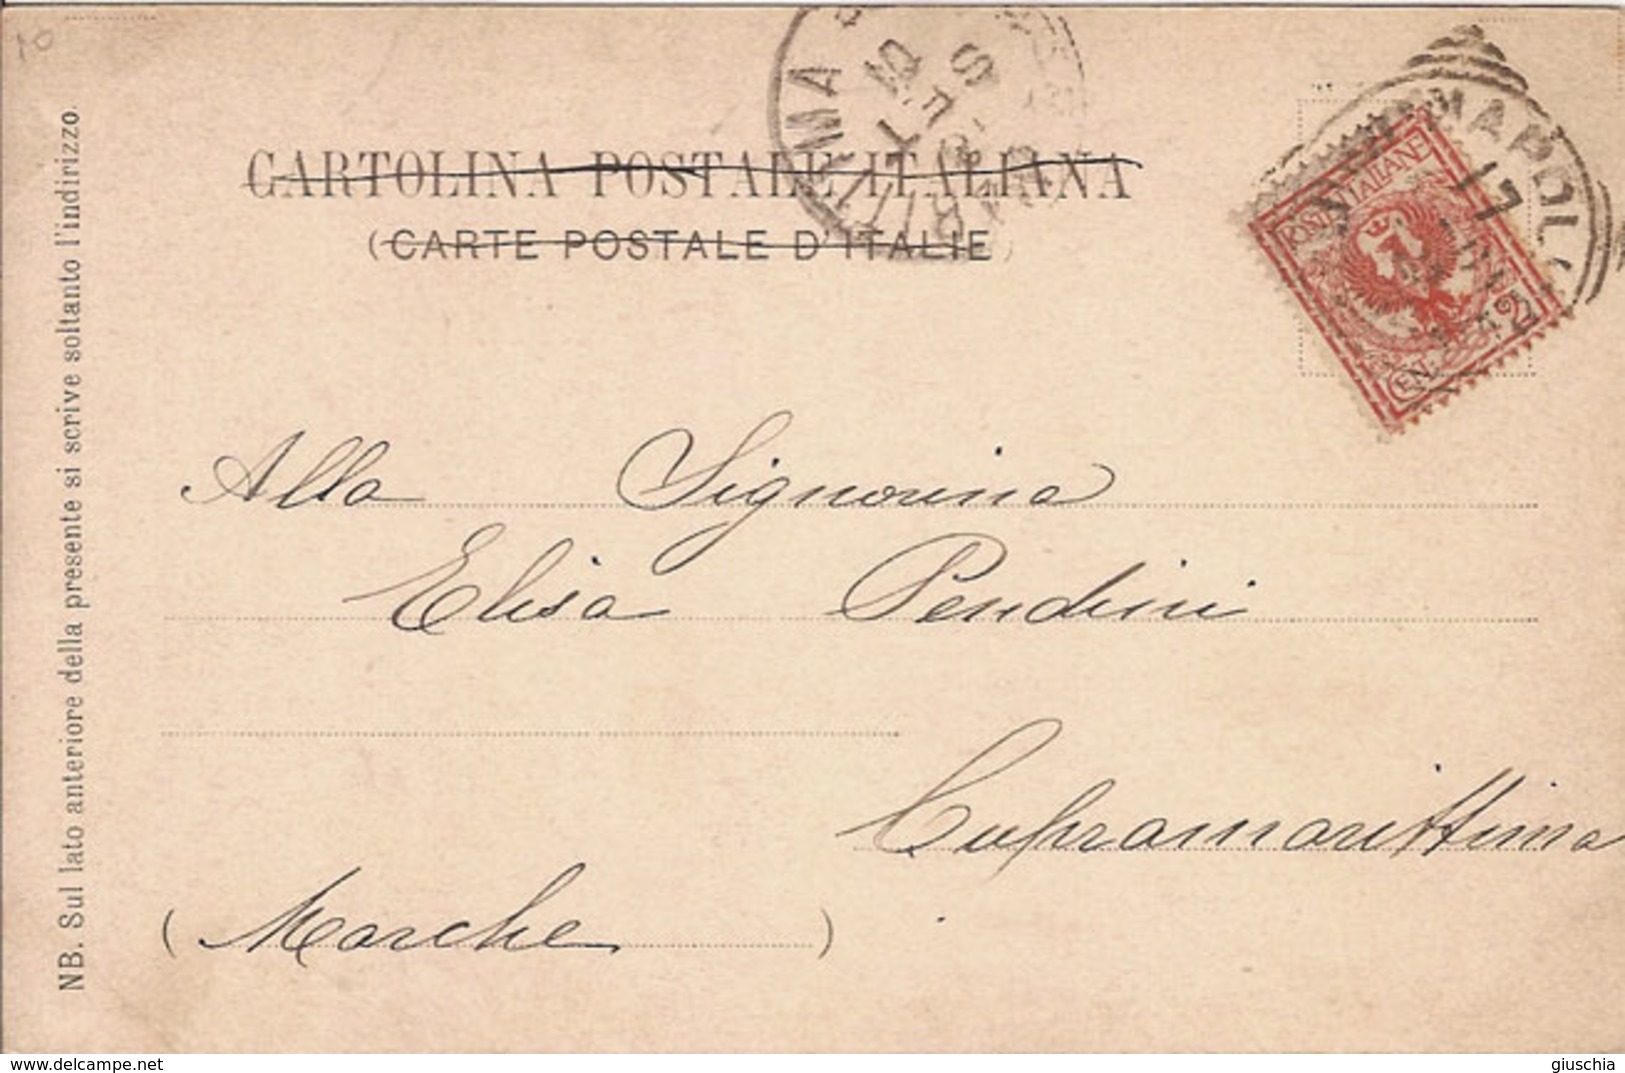 10
CARTOLINA POSTALE ITALIANA
(CARTE POSTALE D'ITALIE)
NAPOLI
17
POSTE ITALIANE
CENT. 2
Alla Signorina
Elisa Pendini
Cupramarittima
(Marche)
NB. Sul lato anteriore della presente si scrive soltanto l'indirizzo.
delcampe.net
giuschia